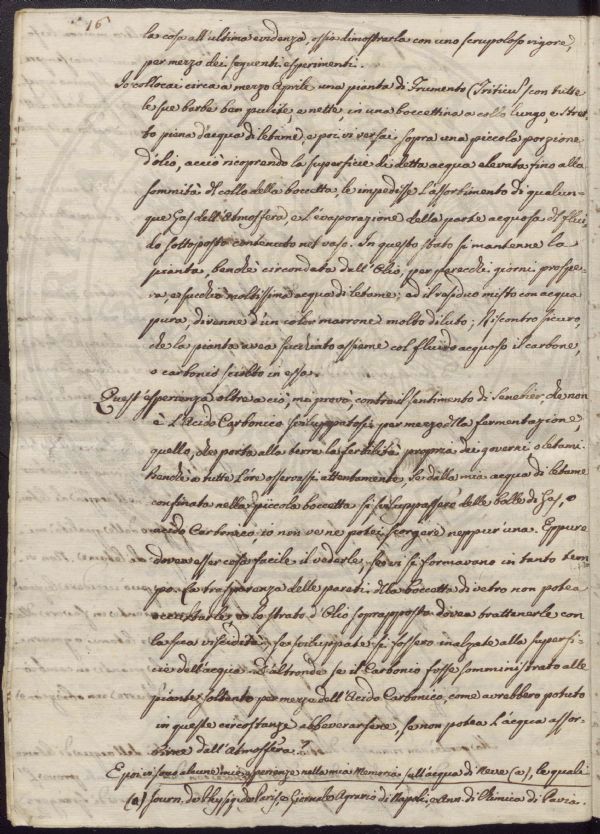 16
la cosa all'ultima evidenza, ossia dimostrarla con uno scrupoloso rigore,
per mezzo dei seguenti esperimenti.
Io collocai circa a mezzo Aprile una pianta di Frumento (Triticu) con tutte
le sue barbe ben pulite, e nette, in una boccettina a collo lungo, e stret-
to piena d'acqua di letame, e poi vi versai sopra una piccola porzione
d'olio, acciò ricoprendo la superficie di detta acqua elevata fino alla
sommità del collo della boccetta, le impedisse l'assorbimento di qualun-
que Gas dell'Atmosfera, e l'evaporazione della parte acquosa del flui-
do sottoposto contenuto nel vaso. In questo stato si mantenne la
pianta, benchè circondata dall'Olio, per parecchi giorni prospe-
ra, e succhiò moltissima acqua di letame; ed il residuo misto con acqua
pura, divenne d'un color marrone molto diluto; Riscontro sicuro,
che la pianta avea succiato assieme col fluido acquoso il carbone,
o carbonio sciolto in essa.
Quest'esperienza oltre a ciò, mi provò, contro il sentimento di Senebier, che non
è l'Acido Carbonico sviluppatosi per mezzo della fermentazione,
quello, che porta alla terra la fertilità propria dei governi o letami.
Mentre a tutte l'ore osservassi attentamente, se dalla mia acqua di letame
confinata nella piccola boccetta si sviluppassero delle bolle di Gas, o
acido Carbonico, io non ve ne potei scorgere neppur'una. Eppure
dovea esser cosa facile il vederle, se ivi si formavano in tanto tem-
po. La trasparenza delle pareti della boccetta di vetro non potea
occultarle, e lo strato d'Olio soprapposto dovea trattenerle con
la sua viscidità, se sviluppate si fossero inalzate alla superfi-
cie dell'acqua. D'altronde se il Carbonio fosse somministrato alle
piante soltanto per mezzo dell'Acido Carbonico, come avrebbero potuto
in queste circostanze abbeverarsene, se non potea l'acqua assor-
birne dall'Atmosfera?
E poi vi sono alcune mie esperienze nella mia Memoria sull'acqua di Neve (a), le quali
(a) Journ. de Physiq. de Paris, e Giornale Agrario di Napoli, e Ann. di Chimica di Pavia.